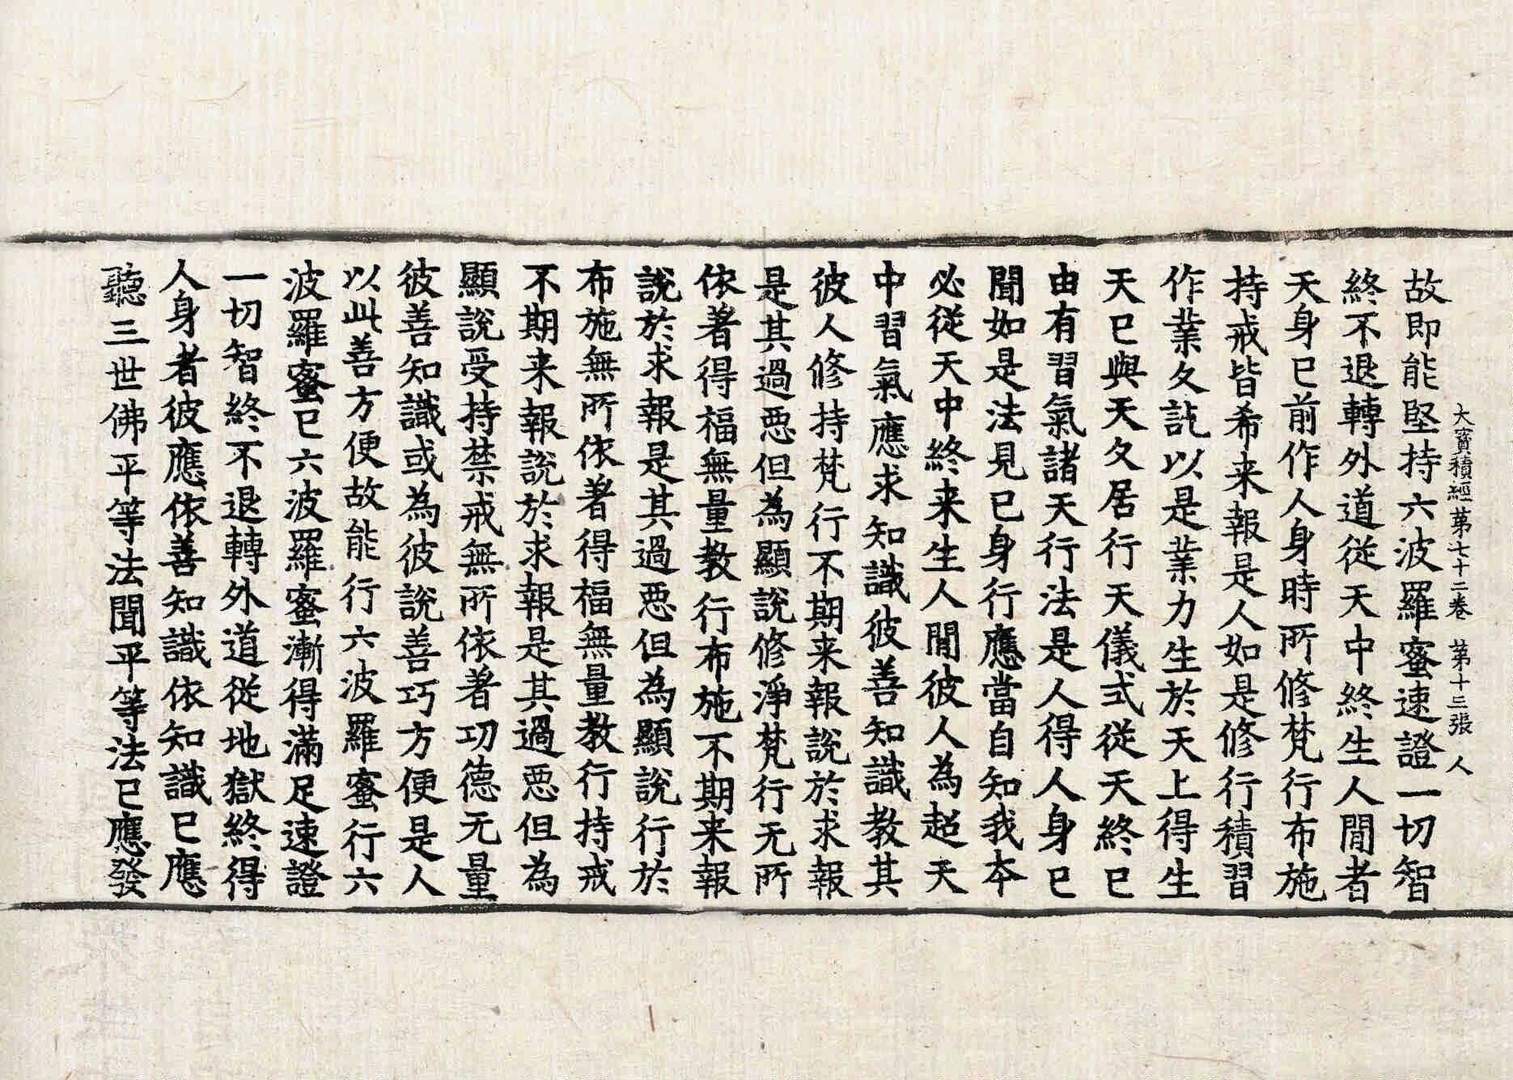 大寳積經第七十二卷　第十三張　人
故即能堅持六波羅蜜速證一切智
終不退轉外道從天中終生人間者
天身已前作人身時所修梵行布施
持戒皆希来報是人如是修行積習
作業久訖以是業力生於天上得生
天已與天久居行天儀式從天終已
由有習氣諸天行法是人得人身已
聞如是法見已身行應當自知我本
必從天中終来生人間彼人為超天
中習氣應求知識彼善知識教其
彼人修持梵行不期来報說於求報
是其過惡但為顯說修淨梵行无所
依著得福無量教行布施不期来報
說於求報是其過惡但為顯說行於
布施無所依著得福無量教行持戒
不期来報說於求報是其過惡但為
顯說受持禁戒無所依著功德无量
彼善知識或為彼說善巧方便是人
以此善方便故能行六波羅蜜行六
波羅蜜已六波羅蜜漸得滿足速證
一切智終不退轉外道從地獄終得
人身者彼應依善知識依知識已應
聽三世佛平等法聞平等法已應發